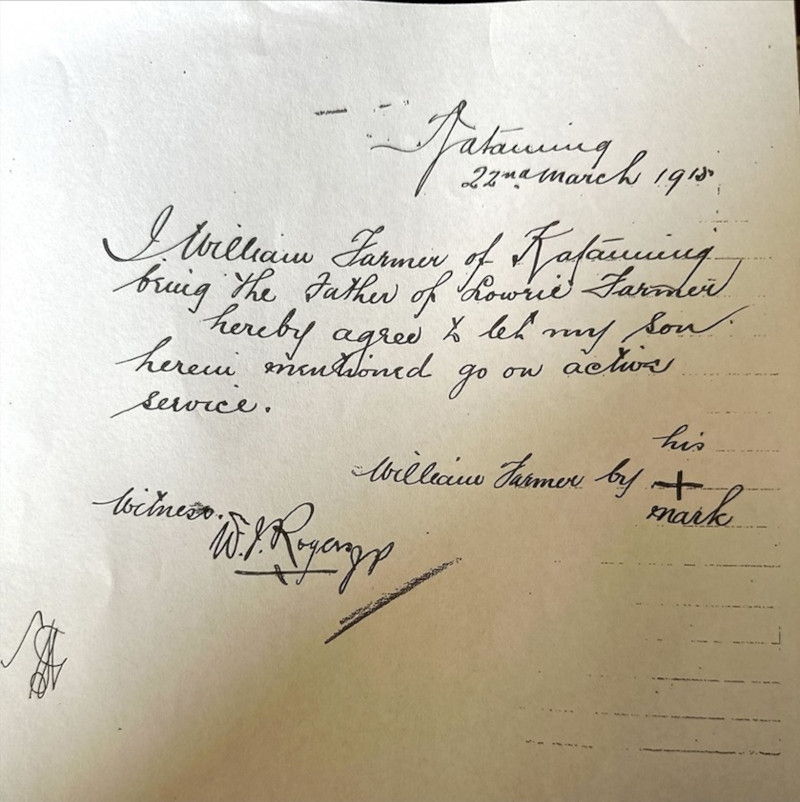 Katanning
22nd March 1915
I William Farmer of Katanning
being the Father of Lowrie Farmer
hereby agree to let my son
herein mentioned go on active
service.
his
William Farmer by +
mark
Witness.
W. J. Rogers JP